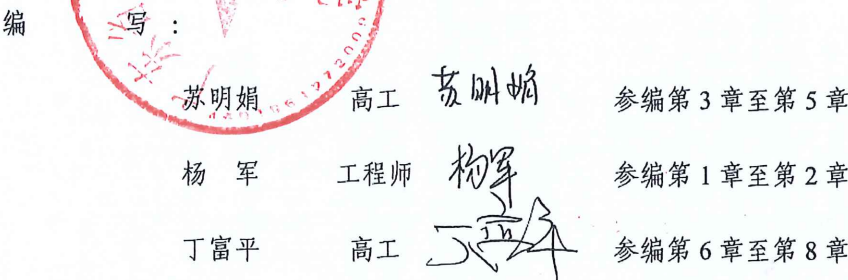 编 写：
苏明娟 高工 苏明娟 参编第 3 章至第 5 章
杨 军 工程师 杨军 参编第 1 章至第 2 章
丁富平 高工 丁富平 参编第 6 章至第 8 章